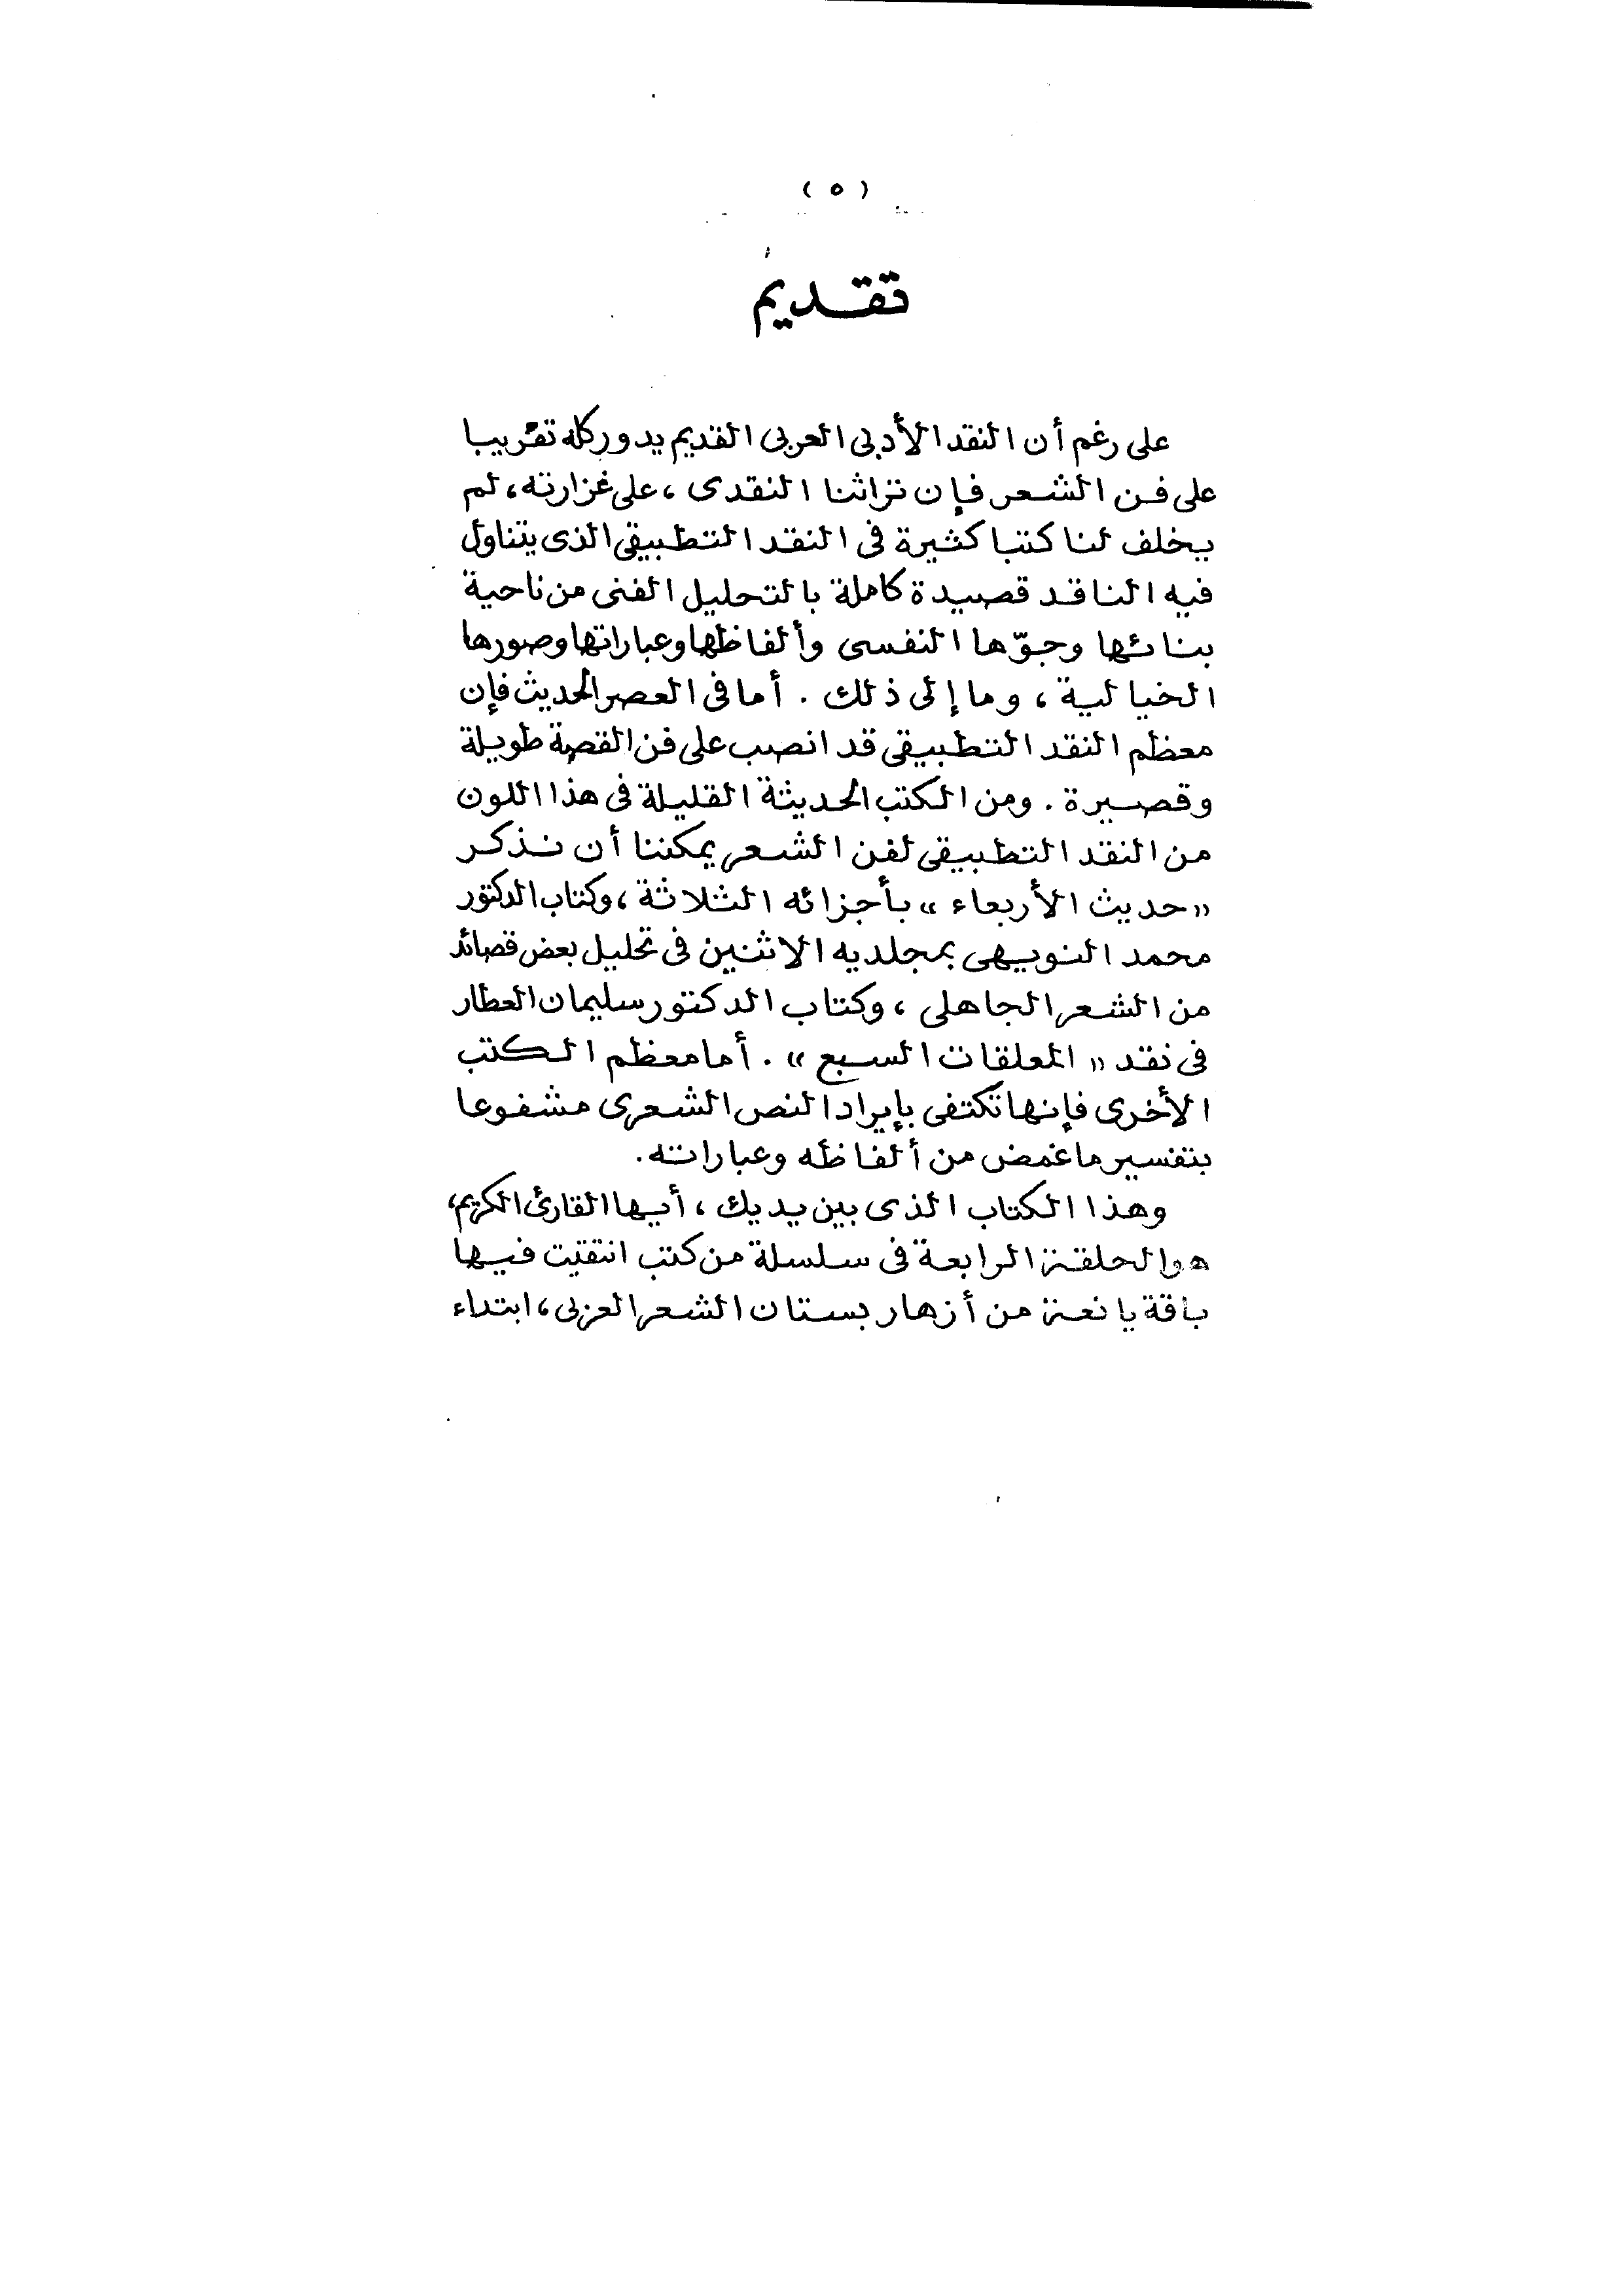 ( ٥ )
تقديم
على رغم أن النقد الأدبى العربى القديم يدور كله تقريبا
على فن الشعر فإن تراثنا النقدى ، على غزارته ، لم
يخلف لنا كتبا كثيرة فى النقد التطبيقى الذى يتناول
فيه الناقد قصيدة كاملة بالتحليل الفنى من ناحية
بنائها وجوّها النفسى وألفاظها وعباراتها وصورها
الخيالية ، وما إلى ذلك . أما فى العصر الحديث فإن
معظم النقد التطبيقى قد انصب على فن القصة طويلة
وقصيرة . ومن الكتب الحديثة القليلة فى هذا اللون
من النقد التطبيقى لفن الشعر يمكننا أن نذكر
« حديث الأربعاء » بأجزائه الثلاثة ، وكتاب الدكتور
محمد النويهى بمجلديه الاثنين فى تحليل بعض قصائد
من الشعر الجاهلى ، وكتاب الدكتور سليمان العطار
فى نقد « المعلقات السبع » . أما معظم الكتب
الأخرى فإنها تكتفى بإيراد النص الشعرى مشفوعا
بتفسير ما غمض من ألفاظه وعباراته .
وهذا الكتاب الذى بين يديك ، أيها القارئ الكريم ،
هو الحلقة الرابعة فى سلسلة من كتب انتقيت فيها
باقة يانعة من أزهار بستان الشعر العربى ، ابتداء